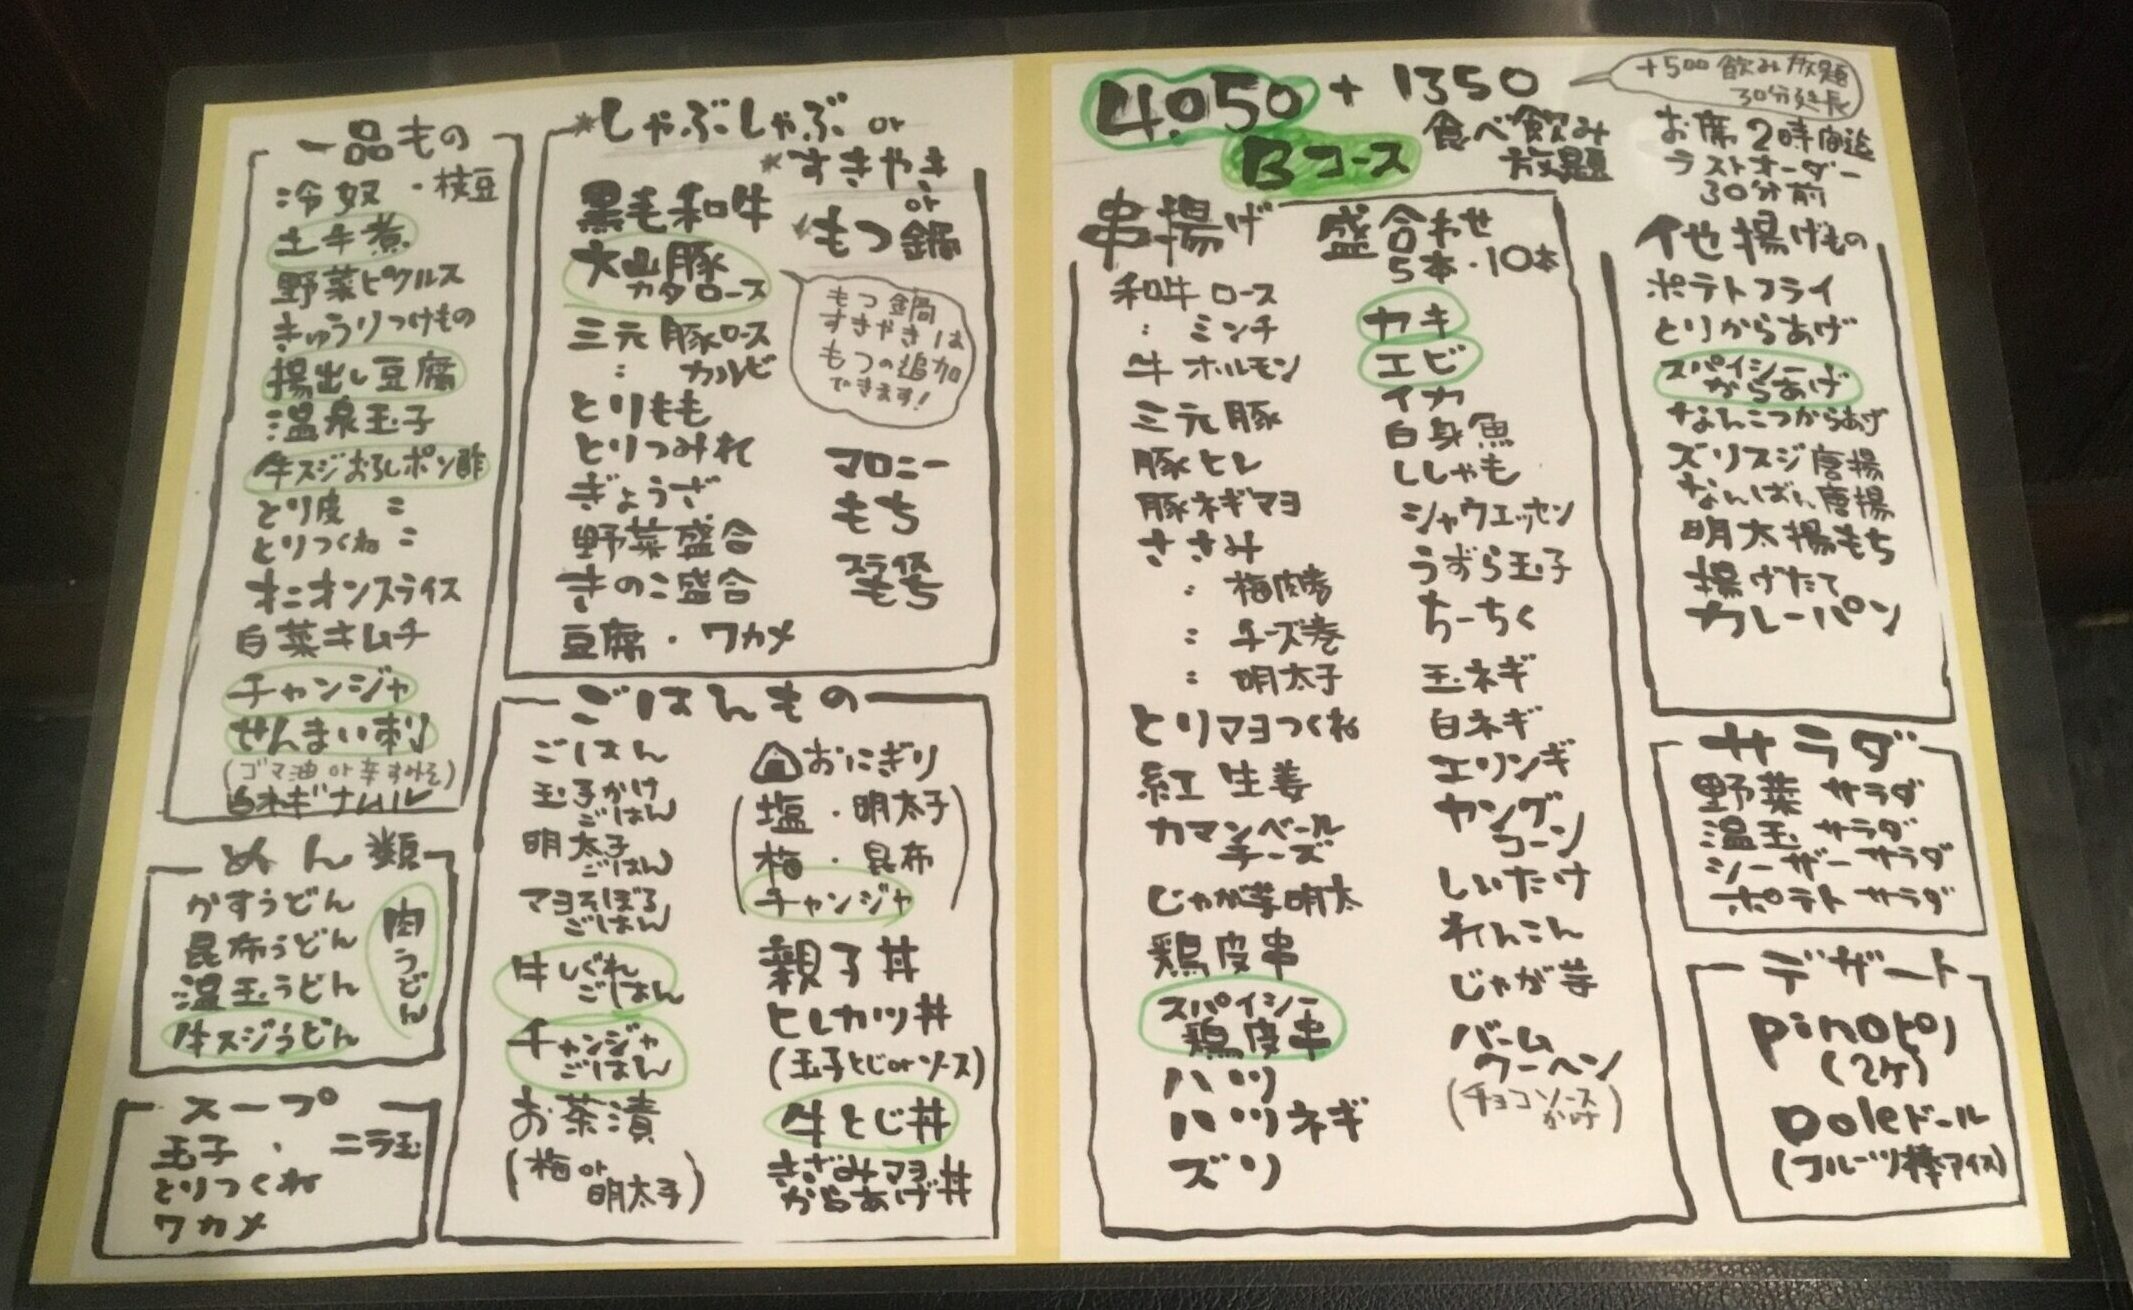 一品もの
冷奴・枝豆
土手煮
野菜ピクルス
きゅうりつけもの
揚出し豆腐
温泉玉子
牛スジおろしポン酢
とり皮 〃
とりつくね 〃
オニオンスライス
白菜キムチ
チャンジャ
せんまい刺
(ゴマ油 or 辛すみそ)
白ネギナムル
めん類
かすうどん
昆布うどん
温玉うどん
牛スジうどん
肉うどん
スープ
玉子・ニラ玉
とりつくね
ワカメ
*しゃぶしゃぶ or
*すきやき
or
もつ鍋
黒毛和牛
大山豚
カタロース
三元豚ロース
〃 カルビ
とりもも
とりつみれ
ぎょうざ
野菜盛合
きのこ盛合
豆腐・ワカメ
もつ鍋
すきやきは
もつの追加
できます!
マロニー
もち
スライス
もち
ごはんもの
ごはん
玉子かけ
ごはん
明太子
ごはん
マヨそぼろ
ごはん
牛しぐれ
ごはん
チャンジャ
ごはん
お茶漬
(梅 or
明太子)
おにぎり
(塩・明太子
梅・昆布
チャンジャ)
親子丼
ヒレカツ丼
(玉子とじorソース)
牛とじ丼
きざみマヨ
からあげ丼
4.050 + 1350
Bコース
食べ飲み
放題
+500 飲み放題
30分延長
お席2時間迄
ラストオーダー
30分前
串揚げ
盛合わせ
5本・10本
和牛ロース
〃 ミンチ
牛ホルモン
三元豚
豚ヒレ
豚ネギマヨ
ささみ
〃 梅肉巻
〃 チーズ巻
〃 明太子
とりマヨつくね
紅生姜
カマンベール
チーズ
じゃが芋明太
鶏皮串
スパイシー
鶏皮串
ハツ
ハツネギ
ズリ
カキ
エビ
イカ
白身魚
ししゃも
シャウエッセン
うずら玉子
ちーちく
玉ネギ
白ネギ
エリンギ
ヤング
コーン
しいたけ
れんこん
じゃが芋
バーム
クーヘン
(チョコソース
かけ)
他揚げもの
ポテトフライ
とりからあげ
スパイシー
からあげ
なんこつからあげ
ズリスジ唐揚
なんばん唐揚
明太揚もち
揚げたて
カレーパン
サラダ
野菜サラダ
温玉サラダ
シーザーサラダ
ポテトサラダ
デザート
pinoピノ
(2ケ)
Doleドール
(フルーツ棒アイス)